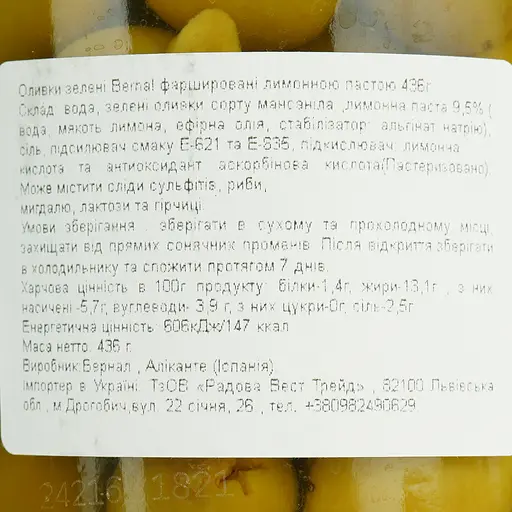 Оливки зелені Bernal фаршировані лимонною пастою 436г
Склад: вода, зелені оливки сорту мансаніла ,лимонна паста 9,5% (
вода, мякоть лимона, ефірна олія, стабілізатор: альгінат натрію),
сіль, підсилювач смаку Е-621 та Е-635, підкислювач: лимонна
кислота та антиоксидант аскорбінова кислота(Пастеризовано).
Може містити сліди сульфітів, риби,
мигдалю, лактози та гірчиці.
Умови зберігання : зберігати в сухому та прохолодному місці,
захищати від прямих сонячних променів. Після відкриття зберігати
в холодильнику та спожити протягом 7 днів.
Харчова цінність в 100г продукту: білки-1,4г, жири-13,1г , з них
насичені -5,7г, вуглеводи- 3,9 г, з них цукри-0г, сіль-2,5г
Енергетична цінність: 606кДж/147 ккал
Маса нетто: 436 г.
Виробник:Бернал , Аліканте (Іспанія).
Імпортер в Україні: ТзОВ «Радова Вест Трейд» , 82100 Львівська
обл., м.Дрогобич,вул. 22 січня, 26 , тел. +380982490629
24216 1821